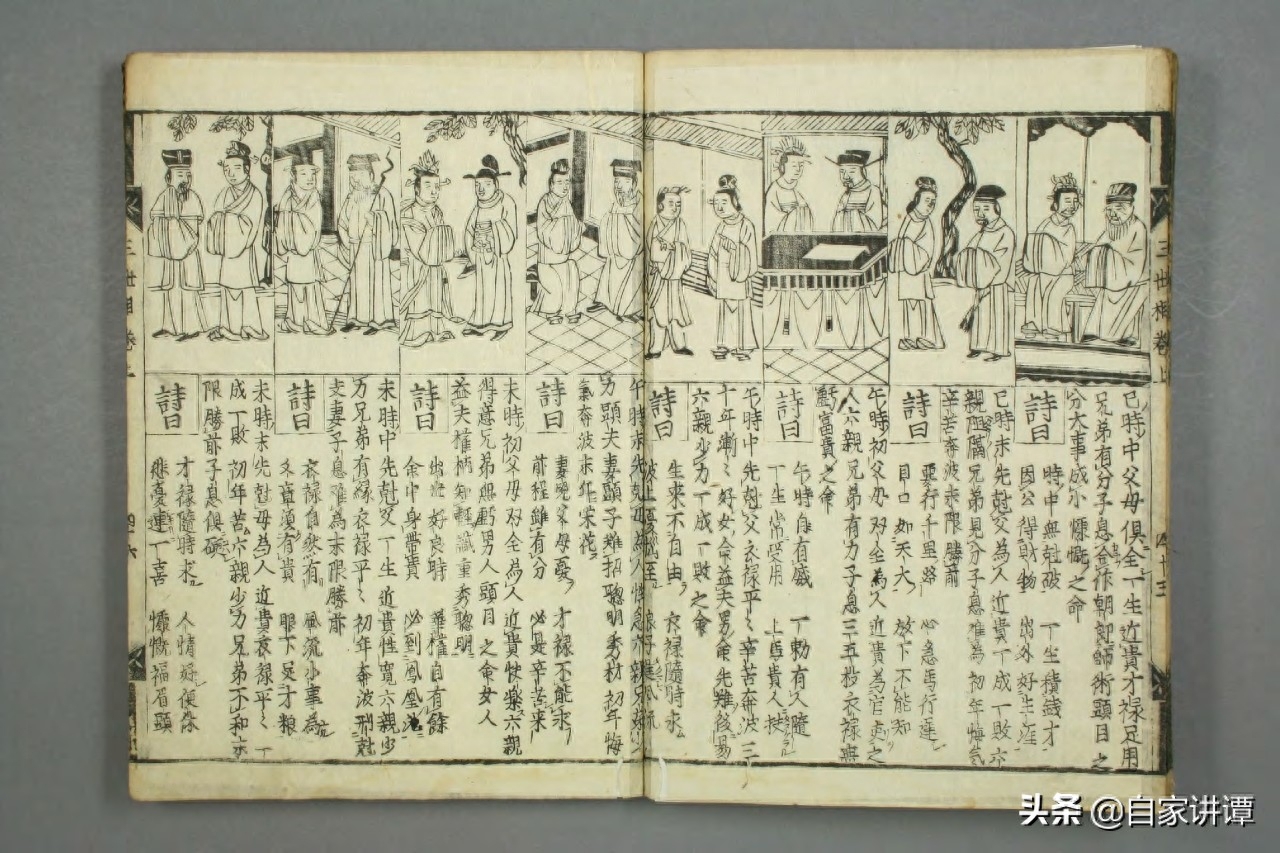 三世相卷上
四十三
巳時中父母俱全一生近貴才祿足用
兄弟有分子息合作朝郎師術頭目之
分大事成小慷慨之命
詩曰
時中無尅破 一生積錢才
因公得財物 出外好生涯
巳時末先尅父為人近貴一成一敗六
親隔兄弟見分子息难為初年悔氣
辛苦奔波末限勝前
詩曰
要行千里路 心急馬行遲
目口如天大 放下不能知
午時初父母双全為人近貴為官之
人六親兄弟有力子息三五枝衣祿無
虧富貴之命
詩曰
午時自有感 丁勅有人隨
一生常受用 上馬貴人扶
午時中先尅父衣祿平〻辛苦奔波三
十年漸〻好女命益夫男命先难後易
六親少力一成一敗之命
詩曰
生求不自由 衣祿隨時求
午時末先尅母為人性急六親兄弟少
力頭夫妻頭子难招聰明秀材初年悔
氣奔波末年荣花
詩曰
妻晚父母憂 才祿不能求
前程雖有分 必是辛苦来
未時初父母双全為人近貴快樂六親
得意兄弟照虧男人頭目之命女人
益夫權柄知輕識重秀聰明
詩曰
出世好良時 華權自有餘
命中身帶貴 必到鳳凰池
未時中先尅父一生近貴性寬六親少
力兄弟有緣衣祿平〻初年奔波刑尅
妻子息难為末限勝前
詩曰
衣祿自然有 風流小事為
文寶須有貴 眼下足才粮
未時末先尅母為人近貴衣祿平〻一
成一敗初年苦六親少力兄弟不和末
限勝前子息俱硬
詩曰
才祿隨時求 人情好便條
悲憂連一喜 慷慨福眉頭
三世相卷上
四六
头条 @自家讲谭